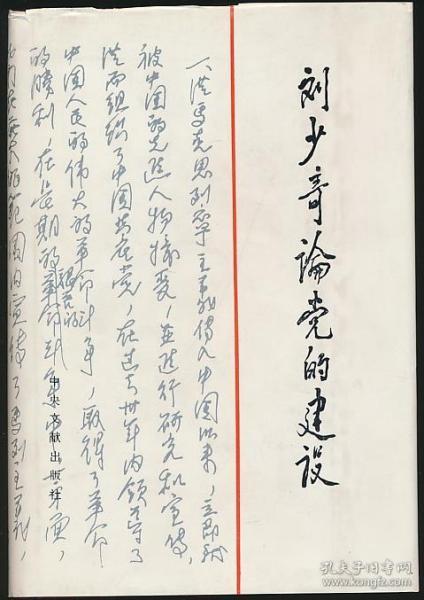 刘少奇論党的建设
一、從馬克思列寧主義传入中国以来，立即就
被中国的先进人物接受，並进行研究和宣传，
從而组织了中国共产党，在过去卅年内领导了
中国人民的伟大的革命斗争，取得了革命
的勝利，在長期的艰苦的革命斗
大的範圍内宣传了馬列主義，
中央文献出版社
孔夫子旧书网
www.kongfz.com